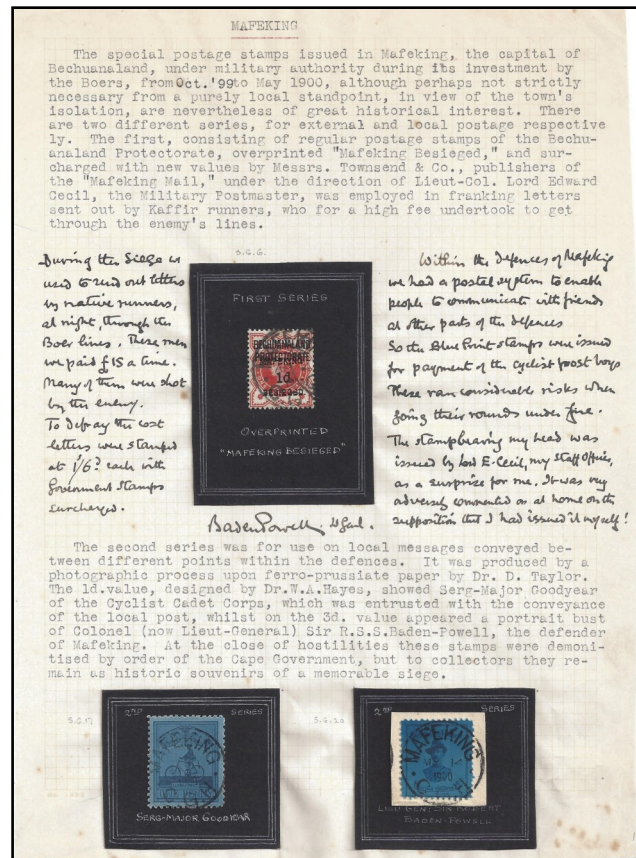 MAFEKING
The special postage stamps issued in Mafeking, the capital of
Bechuanaland, under military authority during its investment by
the Boers, from Oct. '99 to May 1900, although perhaps not strictly
necessary from a purely local standpoint, in view of the town's
isolation, are nevertheless of great historical interest. There
are two different series, for external and local postage respective
ly. The first, consisting of regular postage stamps of the Bechu-
analand Protectorate, overprinted "Mafeking Besieged," and sur-
charged with new values by Messrs. Townsend & Co., publishers of
the "Mafeking Mail," under the direction of Lieut-Col. Lord Edward
Cecil, the Military Postmaster, was employed in franking letters
sent out by Kaffir runners, who for a high fee undertook to get
through the enemy's lines.
During the Siege we
used to send out letters
by native runners,
at night, through the
Boer lines. These men
we paid £15 a time.
Many of them were shot
by the enemy.
To defray the cost
letters were stamped
at 1/6? each with
Government Stamps
surcharged.
S.G.6.
FIRST SERIES
BECHUANALAND
PROTECTORATE
1d.
BESIEGED
OVERPRINTED
"MAFEKING BESIEGED"
Within the defences of Mafeking
we had a postal system to enable
people to communicate with friends
at other parts of the defences
So the Blue Print stamps were issued
for payment of the cyclist post boys
These ran considerable risks when
going their rounds under fire.
The stamp bearing my head was
issued by Lord E. Cecil, my Staff Officer,
as a surprise for me. It was very
adversely commented on at home on the
supposition that I had issued it myself!
Baden Powell
The second series was for use on local messages conveyed be-
tween different points within the defences. It was produced by a
photographic process upon ferro-prussiate paper by Dr. D. Taylor.
The 1d.value, designed by Dr.W.A.Hayes, showed Serg-Major Goodyear
of the Cyclist Cadet Corps, which was entrusted with the conveyance
of the local post, whilst on the 3d. value appeared a portrait bust
of Colonel (now Lieut-General) Sir R.S.S.Baden-Powell, the defender
of Mafeking. At the close of hostilities these stamps were demoni-
tised by order of the Cape Government, but to collectors they re-
main as historic souvenirs of a memorable siege.
S.G.17
2ND SERIES
MAFEKING
SERG-MAJOR GOODYEAR
S.G.20
2ND SERIES
MAFEKING
1900
LIEUT-GEN: SIR ROBERT
BADEN-POWELL